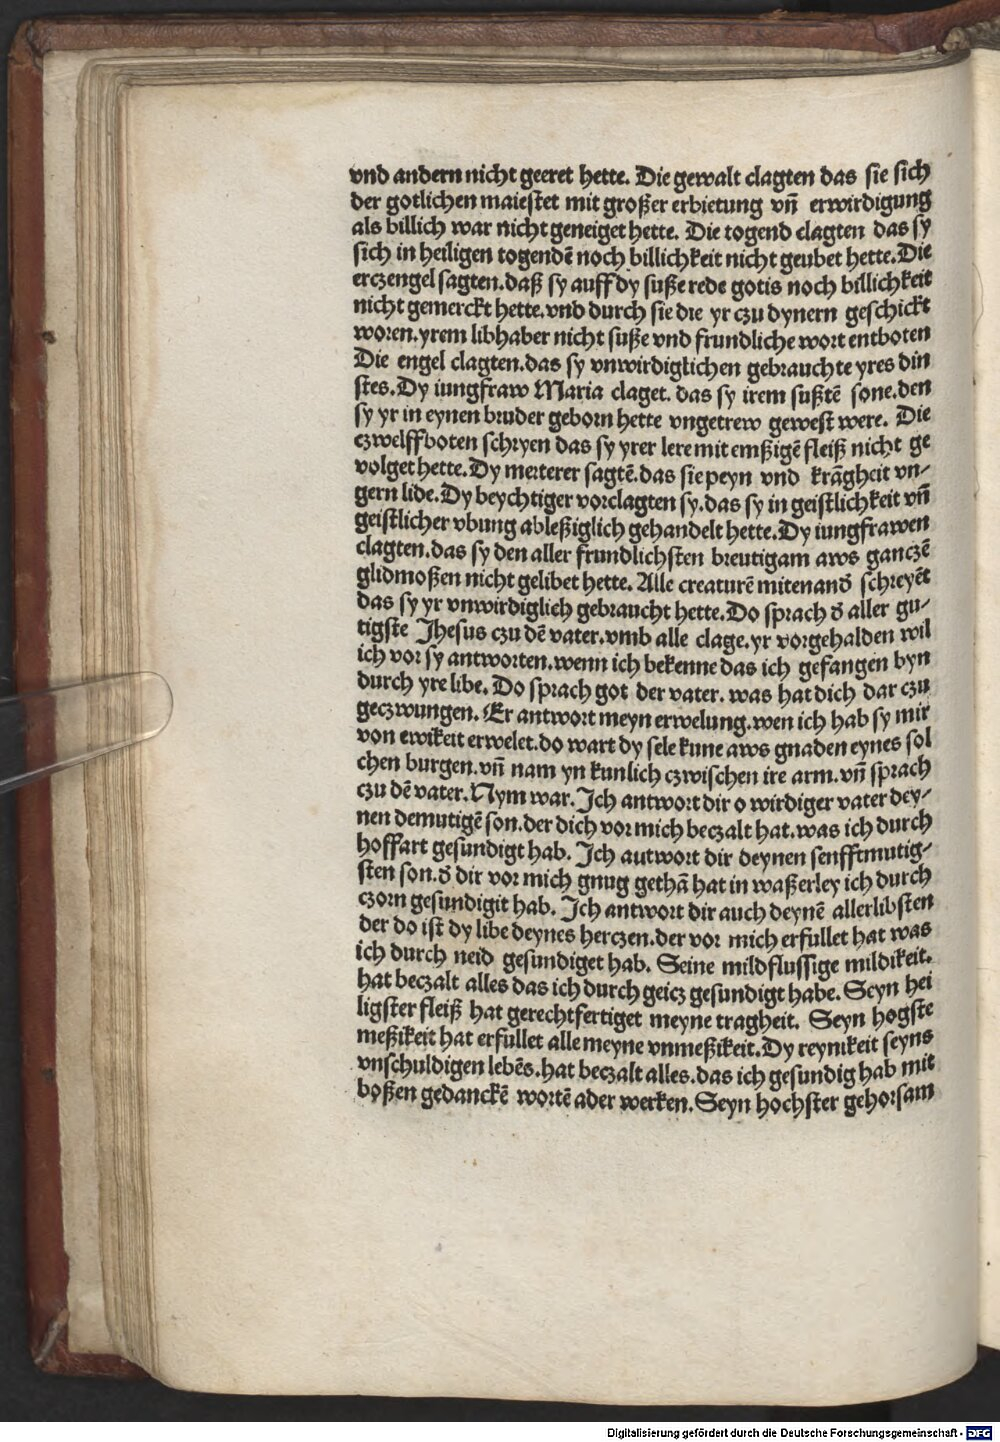 vnd andern nicht geeret hette. Die gewalt clagten das sie sich
der gotlichen maiestet mit großer erbietung vñ erwirdigung
als billich war nicht geneiget hette. Die togend clagten das sy
sich in heiligen togendē noch billichkeit nicht geubet hette. Die
erczengel sagten. daß sy auff dy suße rede gotis noch billichkeit
nicht gemerckt hette. vnd durch sie die yr czu dynern geschickt
woren. yrem libhaber nicht suße vnd frundliche wort entboten
Die engel clagten. das sy vnwirdiglichen gebrauchte yres din
stes. Dy iungfraw Maria claget. das sy irem sußtē sone. den
sy yr in eynen bruder geborn hette vngetrew gewest were. Die
czwelffboten schryen das sy yrer lere mit emßigē fleiß nicht ge
volget hette. Dy merterer sagtē. das sie peyn vnd krāgheit vn⸗
gern lide. Dy beychtiger vorclagten sy. das sy in geistlichkeit vñ
geistlicher vbung ableßiglich gehandelt hette. Dy iungfrawen
clagten. das sy den aller frundlichsten breutigam aws ganczē
glidmoßen nicht gelibet hette. Alle creaturē mitenand̄ schreyēt
das sy yr vnwirdiglich gebraucht hette. Do sprach d̄ aller gu⸗
tigste Jhesus czu dē vater. vmb alle clage. yr vorgehalden wil
ich vor sy antworten. wenn ich bekenne das ich gefangen byn
durch yre libe. Do sprach got der vater. was hat dich dar czu
geczwungen. Er antwort meyn erwelung. wen ich hab sy mir
von ewikeit erwelet. do wart dy sele kune aws gnaden eynes sol
chen burgen. vñ nam yn kunlich czwischen ire arm. vñ sprach
czu dē vater. Nym war. Ich antwort dir o wirdiger vater dey⸗
nen demutigē son. der dich vor mich beczalt hat. was ich durch
hoffart gesundigt hab. Ich autwort dir deynen senfftmutig⸗
sten son. d̄ dir vor mich gnug gethā hat in waßerley ich durch
czorn gesundigit hab. Ich antwort dir auch deynē allerlibsten
der do ist dy libe deynes herczen. der vor mich erfullet hat was
ich durch neid gesundiget hab. Seine mildflussige mildikeit.
hat beczalt alles das ich durch geicz gesundigt habe. Seyn hei
ligster fleiß hat gerechtfertiget meyne tragheit. Seyn hogste
meßikeit hat erfullet alle meyne vnmeßikeit. Dy reynikeit seyns
vnschuldigen lebēs. hat beczalt alles. das ich gesundig hab mit
boßen gedanckē wortē ader werken. Seyn hochster gehorsam
Digitalisierung gefördert durch die Deutsche Forschungsgemeinschaft - DFG